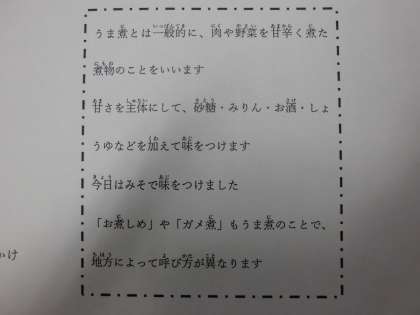 うま煮とは一般的に、肉や野菜を甘辛く煮た
煮物のことをいいます
甘さを主体にして、砂糖・みりん・お酒・しょ
うゆなどを加えて味をつけます
今日はみそで味をつけました
「お煮しめ」や「ガメ煮」もうま煮のことで、
地方によって呼び方が異なります